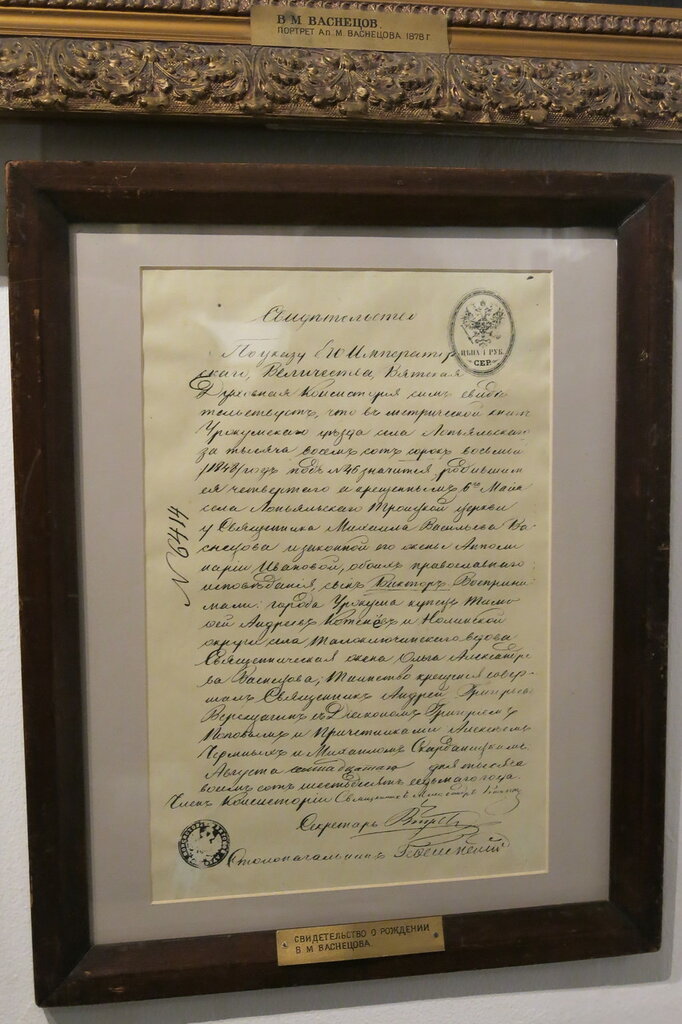 В М ВАСНЕЦОВ.
ПОРТРЕТ Ап. М. ВАСНЕЦОВА. 1878 Г
Свидѣтельство
ЦѢНА 1 РУБ.
СЕР.
По указу Его Император
скаго, Величества, Вятская
Духовная Консисторія симъ свидѣ
тельствуетъ, что въ метрической книгѣ
Уржумскаго уѣзда села Лопьяльскаго
за тысяча восемь сотъ сорокъ восьмый
/1848/ годъ подъ №26 значится, родившим
ся четвертаго и крещеннымъ 6го Мая
села Лопьяльскаго Троицкой церкви
у Священника Михаила Васильева Ва-
снецова и законной его жены Аполи
наріи Ивановой, обоихъ православнаго
исповѣданія, сынъ Викторъ. Восприни
мали: города Уржума купецъ
Андреевъ и Нолинской
округи села вдова
Священническая жена Ольга Александро
ва Васнецова; Таинство крещенія совер-
шалъ Священникъ Андрей
Верещагинъ съ Дьякономъ
Поповымъ и Причетниками Алексѣемъ
и Михаиломъ
Августа дня тысяча
восемь сотъ шестьдесятъ седьмаго года.
Членъ Консисторіи Священникъ
Секретарь
Столоначальникъ
N 6414
СВИДЕТЕЛЬСТВО О РОЖДЕНИИ
В М ВАСНЕЦОВА.